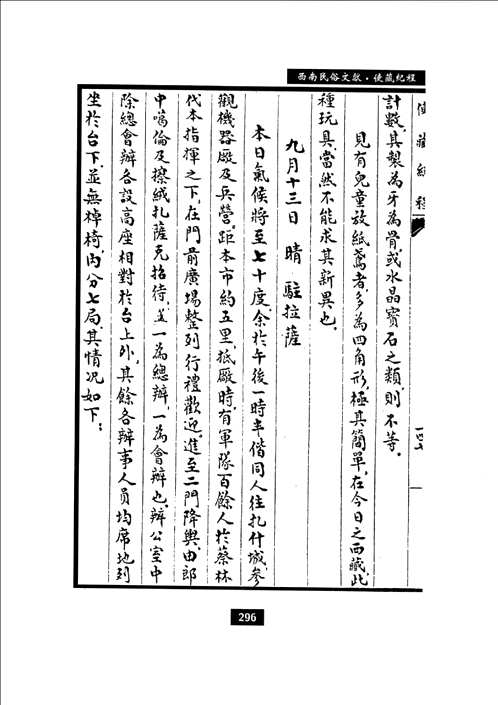 西南民俗文献·使藏紀程
使藏紀程
一四七
計數，其製為牙為骨，或水晶寶石之類，則不等。
見有兒童放紙鳶者，多為四角形，極其簡單，在今日之西藏，此
種玩具，當然不能求其新異也。
九月十三日 晴 駐拉薩
本日氣候將至七十度，余於午後一時半偕同人往扎什城，參
觀機器廠及兵營。距本市約五里，抵廠時，有軍隊百餘人，於蔡林
代本指揮之下，在門前廣場整列行禮歡迎。進至二門降輿，由郎
中噶倫及擦絨扎薩克招待，蓋一為總辦，一為會辦也。辦公室中
除總會辦各設高座相對於台上外，其餘各辦事人員均席地列
坐於台下，並無棹椅，內分七局，其情況如下：
296